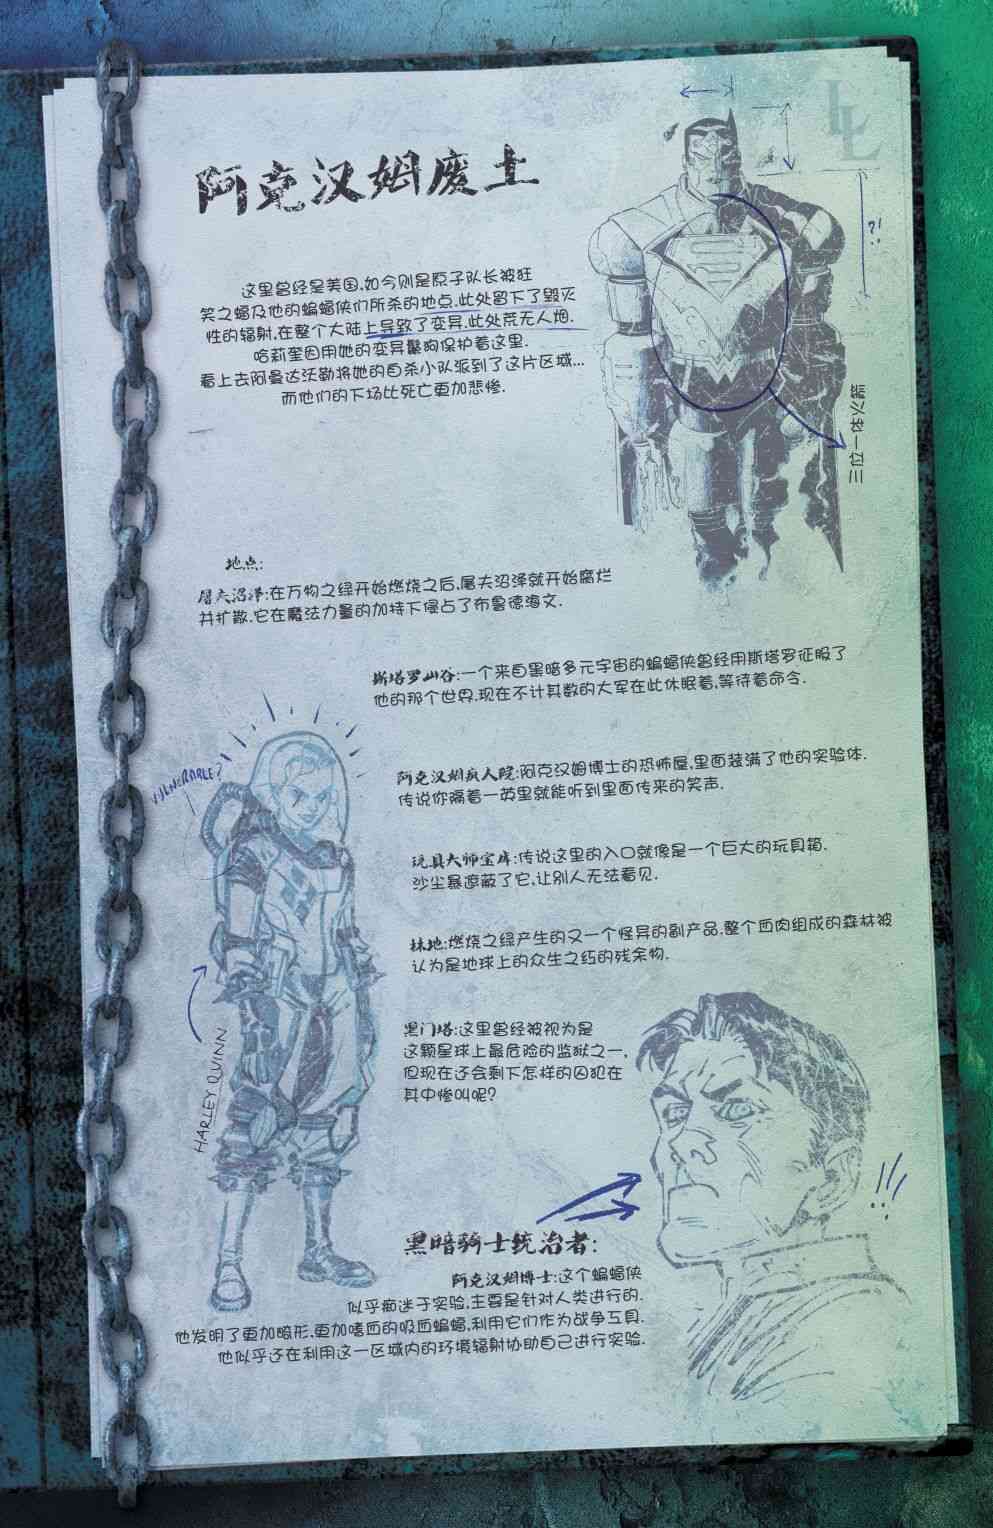 LL
阿克汉姆废土
?!
这里曾经是美国.如今则是原子队长被狂
笑之蝠及他的蝙蝠侠们所杀的地点.此处留下了毁灭
性的辐射,在整个大陆上导致了变异.此处荒无人烟.
哈莉奎因用她的变异鬣狗保护着这里.
看上去阿曼达沃勒将她的自杀小队派到了这片区域...
而他们的下场比死亡更加悲惨.
三位一体火箭
地点:
屠夫沼泽:在万物之绿开始燃烧之后,屠夫沼泽就开始腐烂
并扩散.它在魔法力量的加持下侵占了布鲁德海文.
斯塔罗山谷:一个来自黑暗多元宇宙的蝙蝠侠曾经用斯塔罗征服了
他的那个世界.现在不计其数的大军在此休眠着,等待着命令.
VULNERABLE?
阿克汉姆病人院:阿克汉姆博士的恐怖屋,里面装满了他的实验体.
传说你隔着一英里就能听到里面传来的笑声.
玩具大师宝库:传说这里的入口就像是一个巨大的玩具箱.
沙尘暴遮蔽了它,让别人无法看见.
林地:燃烧之绿产生的又一个怪异的副产品.整个血肉组成的森林被
认为是地球上的众生之红的残余物.
HARLEY QUINN
黑门塔:这里曾经被视为是
这颗星球上最危险的监狱之一,
但现在还会剩下怎样的囚犯在
其中惨叫呢?
!!!
黑暗骑士统治者:
阿克汉姆博士:这个蝙蝠侠
似乎痴迷于实验.主要是针对人类进行的.
他发明了更加畸形.更加嗜血的吸血蝙蝠,利用它们作为战争工具.
他似乎还在利用这一区域内的环境辐射协助自己进行实验.